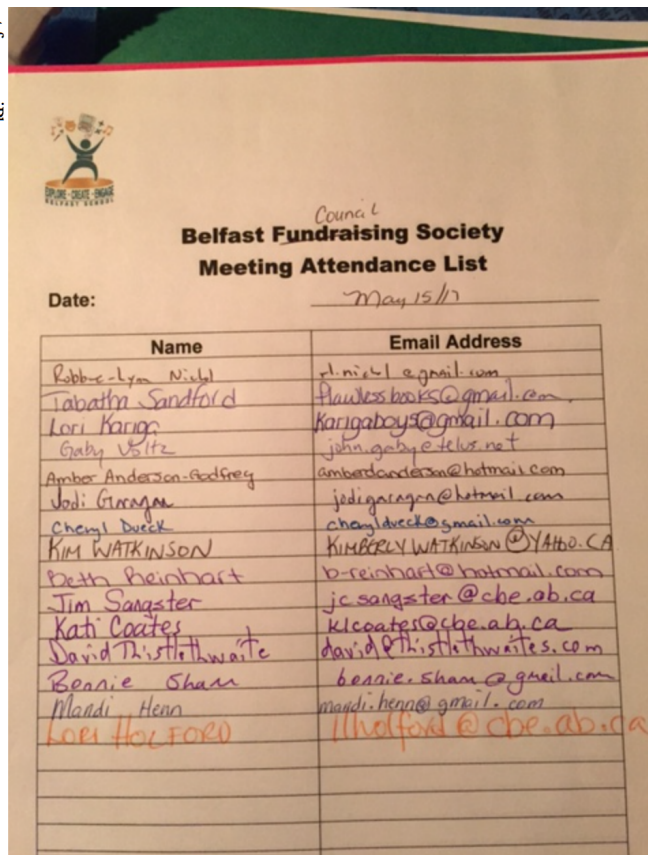 EXPLORE - CREATE - ENGAGE
BELFAST SCHOOL
Council
Belfast Fundraising Society
Meeting Attendance List
Date: May 15/17
Name Email Address
Robbie-Lynn Nichl rl.nichl@gmail.com
Tabatha Sandford flawlessbooks@gmail.com.
Lori Kariga Karigaboys@gmail.com
Gaby Voltz john.gaby@telus.net
Amber Anderson-Godfrey amberdanderson@hotmail.com
Jodi Garagan jodigaragan@hotmail.com
Cheryl Dueck cheryldueck@gmail.com
KIM WATKINSON KIMBERLYWATKINSON@YAHOO.CA
Beth Reinhart b-reinhart@hotmail.com
Jim Sangster jcsangster@cbe.ab.ca
Kati Coates klcoates@cbe.ab.ca
David Thistlethwaite david@thistlethwaites.com
Bennie Sham bennie.sham@gmail.com
Mandi Henn mandi.henn@gmail.com
LORI HOLFORD llholford@cbe.ab.ca